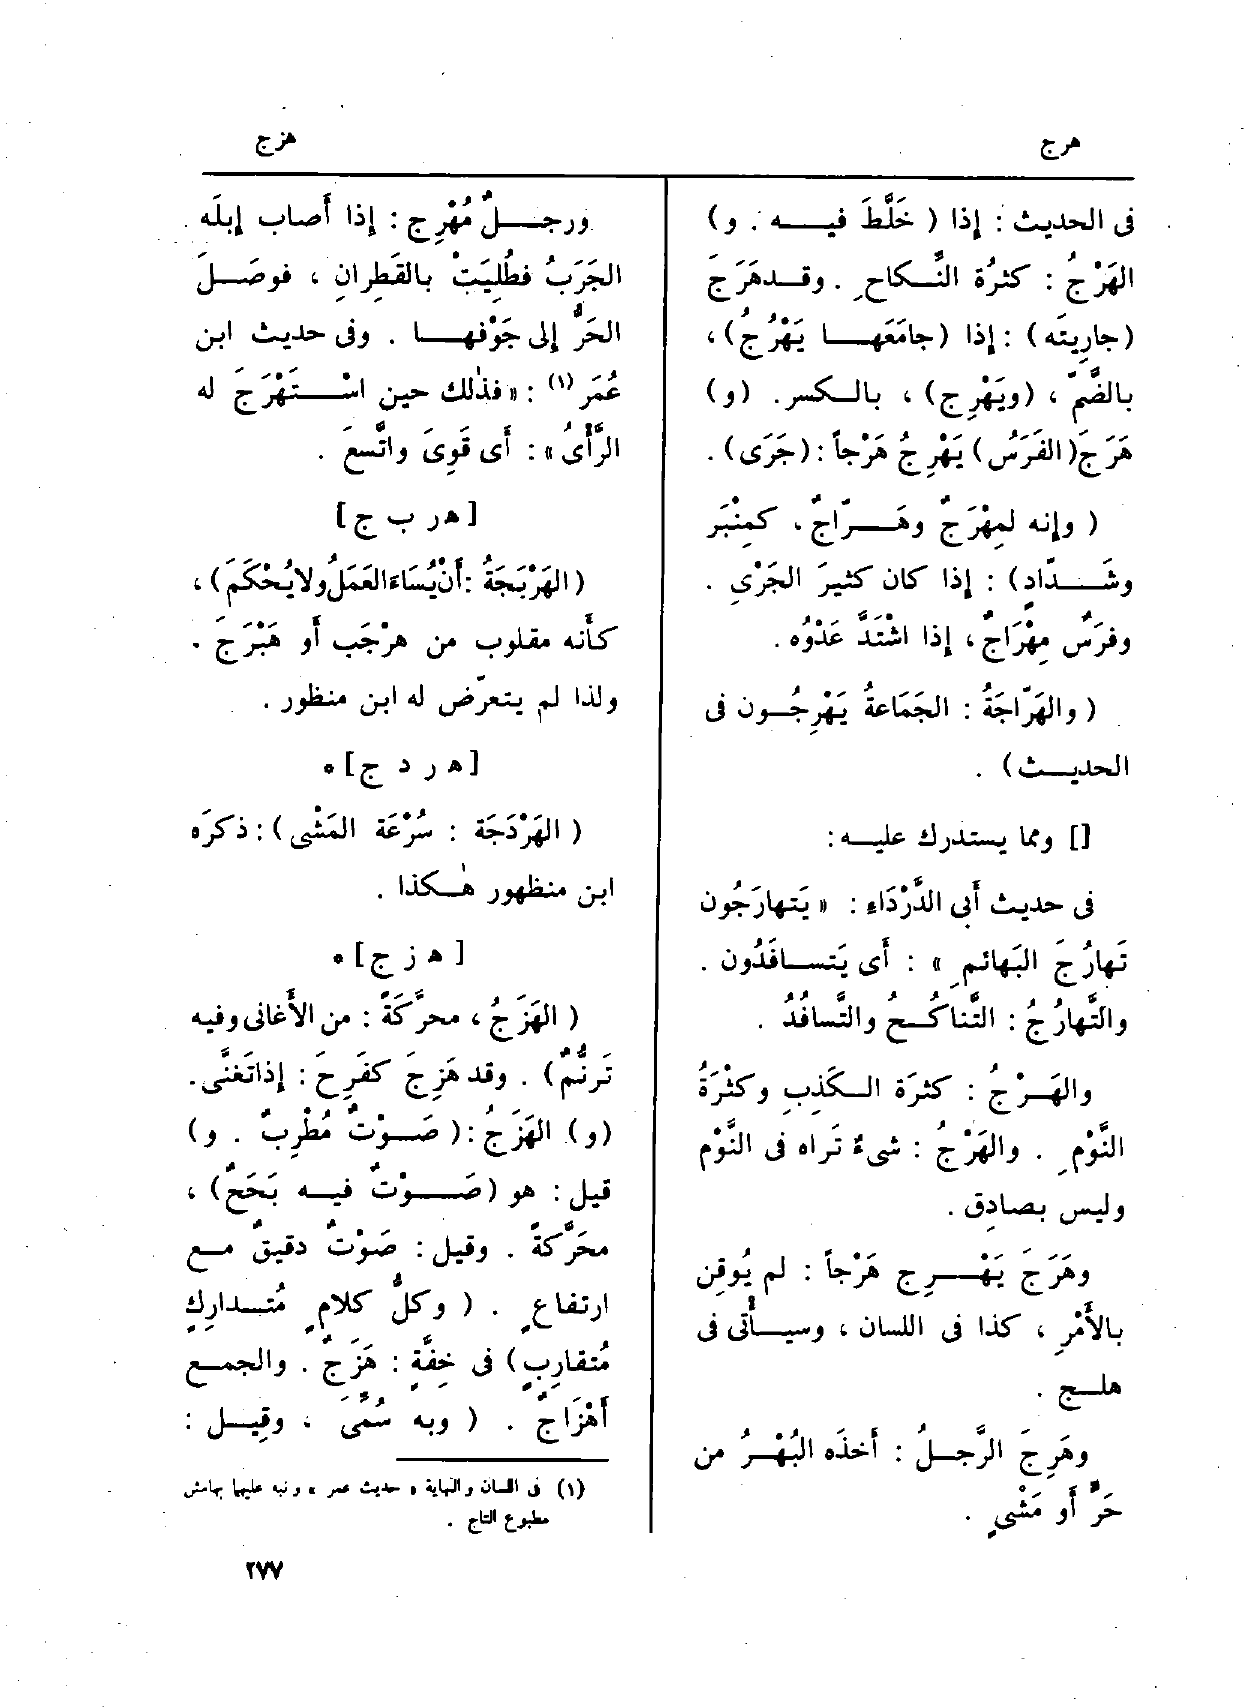 هرج
هزج
فى الحديث : إذا ( خَلَّطَ فيــه . و)
الهَرْجُ : كثرُة النِّــكاحِ . وقــد هَرَجَ
(جاريتَه) : إذا (جامَعَهــا يَهْرُجُ) ،
بالضَّمّ ، (ويَهْرِج) ، بالــكسر . (و)
هَرَجَ (الفَرَسُ) يَهْرِجُ هَرْجاً : (جَرَى) .
( وإنه لمِهْرَجٌ وهَــرّاجٌ ، كمِنْبَر
وشَــدّادٍ) : إذا كان كثيرَ الجَرْىِ .
وفرَسٌ مِهْرَاجٌ ، إذا اشْتَدَّ عَدْوُه .
( والهَرّاجَةُ : الجَمَاعةُ يَهْرِجُــون فى
الحديــث) .
[] ومما يستدرك عليــه :
فى حديث أبى الدَّرْدَاءِ : « يَتهارَجُون
تَهارُجَ البَهائمِ » : أى يَتســافَدُون .
والتَّهارُجُ : التَّناكُــحُ والتَّسافُدُ .
والهَــرْجُ : كثرَة الــكَذِبِ وكثْرَةُ
النَّوْمِ . والهَرْجُ : شىءٌ تَراه فى النَّوْم
وليس بصادِق .
وهَرَجَ يَهْــرِج هَرْجاً : لم يُوقِن
بالأَمْرِ ، كذا فى اللسان ، وسيــأْتى فى
هلــج .
وهَرِجَ الرَّجــلُ : أَخذَه البُهْــرُ من
حَرٍّ أَو مَشْىٍ .
ورجــلٌ مُهْرِج : إذا أَصاب إبلَه
الجَرَبُ فطُلِيَتْ بالقَطِرانِ ، فوصَــلَ
الحَرُّ إلى جَوْفهــا . وفى حديث ابن
عُمَر (١) : « فذٰلك حين اسْــتَهْرَجَ له
الرَّأْىُ » : أَى قَوِىَ واتَّسعَ .
[ هـ ر ب ج ]
( الهَرْبَجَةُ : أَنْ يُسَاءَ العَمَلُ ولا يُحْكَمَ) ،
كأَنه مقلوب من هرْجَب أَو هَبْرَجَ .
ولذا لم يتعرّض له ابن منظور .
[ هـ ر د ج ] *
( الهَرْدَجَة : سُرْعَة المَشْى) : ذكرَه
ابن منظهور هٰــكذا .
[ هـ ز ج ] *
( الهَزَجُ ، محرَّكَةً : من الأَغانى وفيه
تَرنُّمٌ) . وقد هَزِجَ كفَرِحَ : إذا تَغنَّى .
(و) الهَزَجُ : ( صَــوْتٌ مُطْرِبٌ . و)
قيل : هو (صَــوْتٌ فيــه بَحَحٌ) ،
محَرَّكةً . وقيل : صَوْتٌ دقيقٌ مــع
ارتفاعٍ . ( وكلُّ كلامٍ مُتــدارِكٍ
مُتقارِبٍ) فى خِفَّةٍ : هَزَجٌ . والجمــع
أَهْزَاجٌ . ( وبه سُمِّىَ ، وقِيــل :
(١) فى اللسان والنهاية « حديث عمر » ونبه عليها بهامش
مطبوع التاج .
٢٧٧